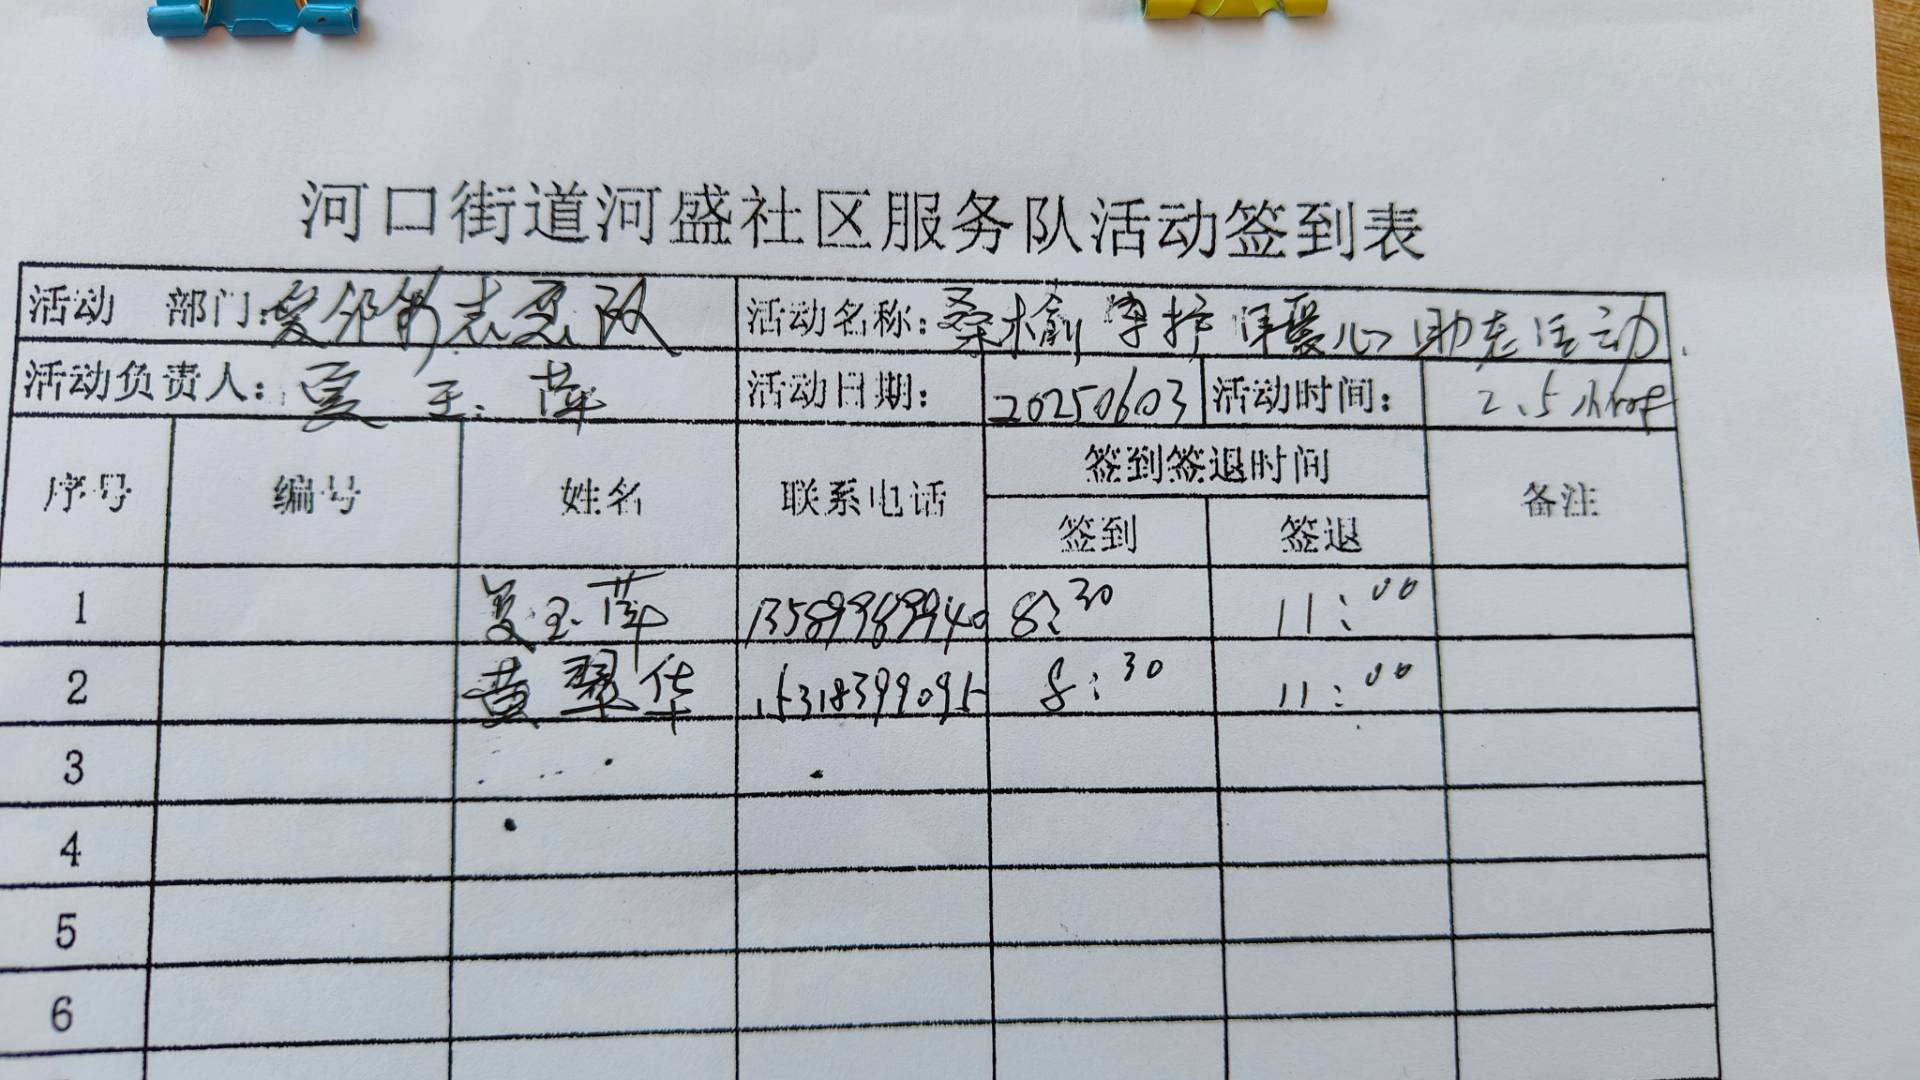 河口街道河盛社区服务队活动签到表
活动 部门:爱邻彩志愿队 活动名称:桑榆 护 暖爱心助老活动
活动负责人:夏玉萍 活动日期: 20250603 活动时间: 2.5小时
序号 编号 姓名 联系电话 签到签退时间 备注
签到 签退
1 夏玉萍 13589989940 8:30 11:00
2 黄翠华 15318399095 8:30 11:00
3
4
5
6